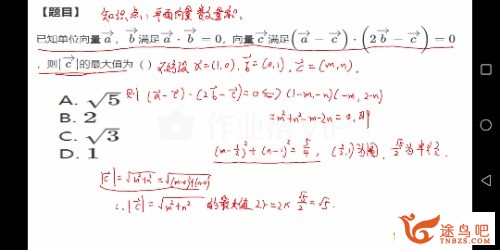 【题目】 知识点:平面向量数量积.
已知单位向量a, b满足a·b=0, 向量c满足(a-c)·(2b-c)=0
, 则|c|的最大值为 ( ) 不妨设 a=(1,0), b=(0,1), c=(m,n),
A. √5 则 (a-c)·(2b-c)=0⇔(1-m,-n)(-m, 2-n)
B. 2 =m²+n²-m-2n=0, 即
C. √3 (m-1/2)²+(n-1)²=5/4, (1/2,1)为圆, √5/2为半径.
D. 1
|c|=√m²+n²=√(m-0)²+(n-0)²
∴|c|=√m²+n² 的最大值 2r=2×√5/2=√5.
途鸟吧
www.tuniao8.com